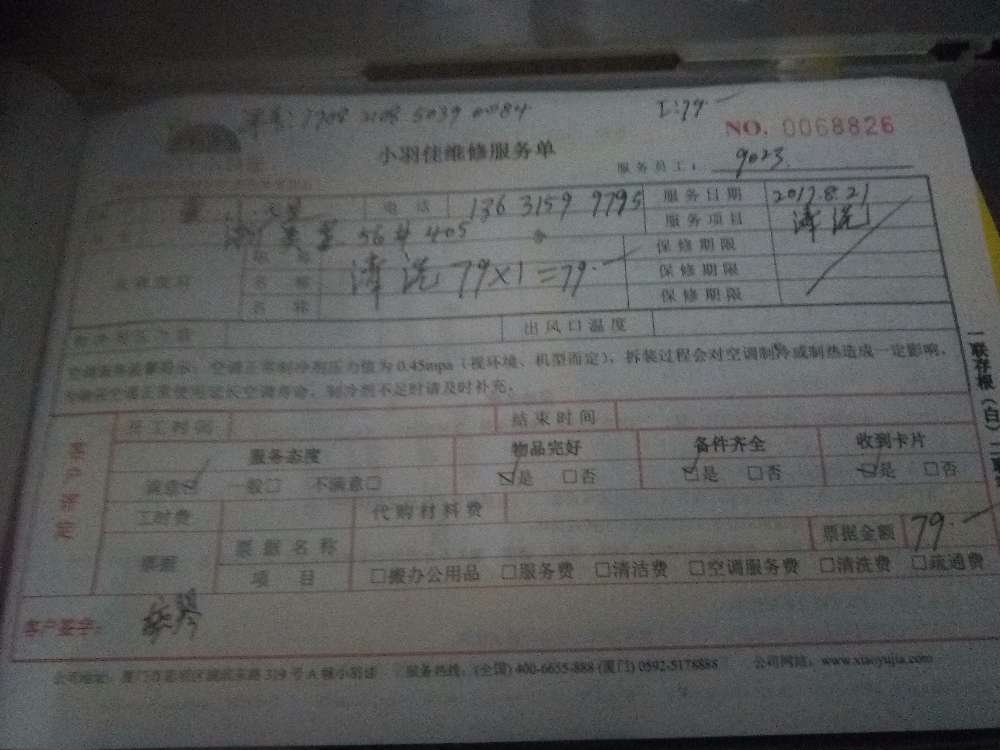 单号: 1708 2108 5039 0084
NO. 0068826
小羽佳维修服务单
服务员工: 9023
电话 136 3159 9795 服务日期 2017.8.21
56# 405 服务项目 清洗
名称 保修期限
名称 清洗 79×1=79. 保修期限
名称 保修期限
出风口温度
空调正常制冷剂压力值为0.45mpa（视环境、机型而定），拆装过程会对空调制冷或制热造成一定影响，
制冷剂不足时请及时补充。
一联存根（白）二
客户评定
开工时间 结束时间
服务态度 物品完好 备件齐全 收到卡片
满意☑ 一般□ 不满意□ ☑是 □否 ☑是 □否 ☑是 □否
工时费 代购材料费
票据金额 79.
票据 票据名称
项目 □搬办公用品 □服务费 □清洁费 □空调服务费 □清洗费 □疏通费
客户签字:
公司地址: 厦门市 319号A幢小羽佳 服务热线: (全国) 400-6655-888 (厦门) 0592-5178888 公司网站: www.xiaoyujia.com